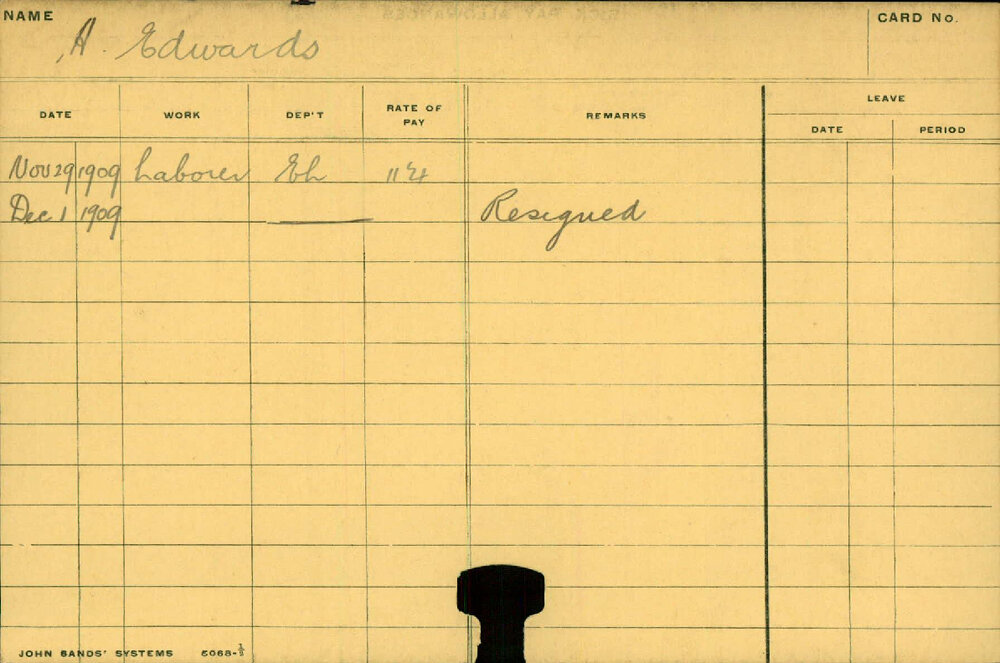 NAME
A. Edwards
CARD No.
DATE WORK DEP'T RATE OF PAY REMARKS LEAVE
DATE PERIOD
Nov 29 1909 Laborer Eh
Dec 1 1909 Resigned
JOHN SANDS' SYSTEMS 5068-½